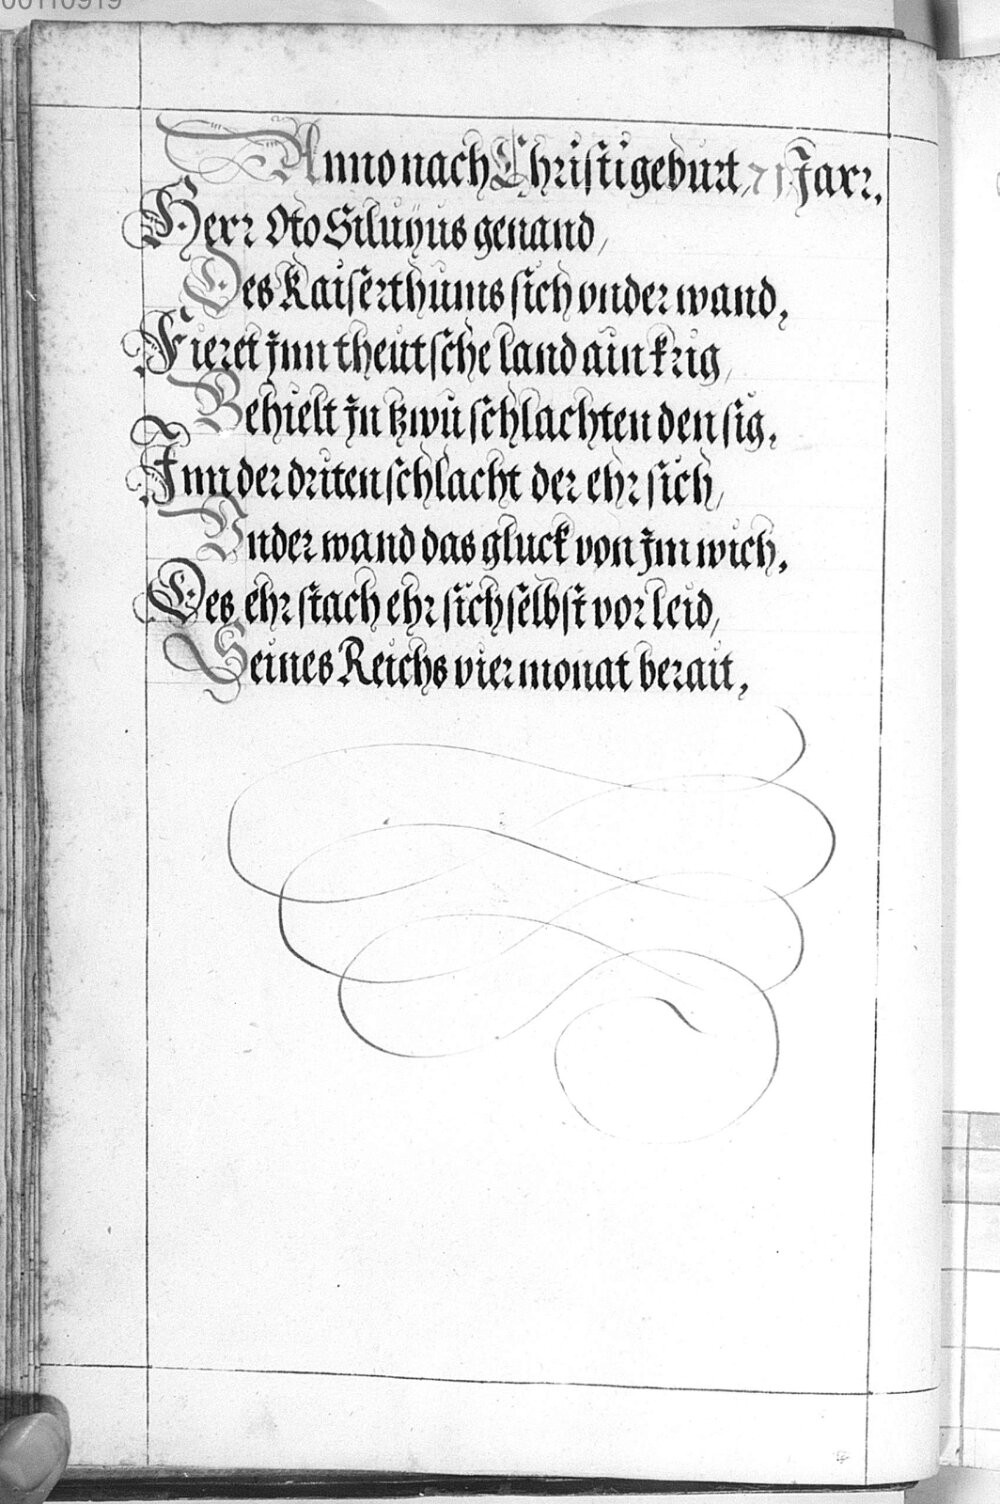 00110919
Anno nach Christi geburt, 71 Jarr.
Herr Oto Siluyus genand,
Des Kaiserthums sich vnder wand,
Fieret jnn theutsche land ain krig,
Behielt jn tzwu schlachten den sig,
Inn der driten schlacht der ehr sich,
Vnder wand das gluck von jm wich,
Des ehr stach ehr sich selbst vor leid,
Seines Reichs vier monat berait,